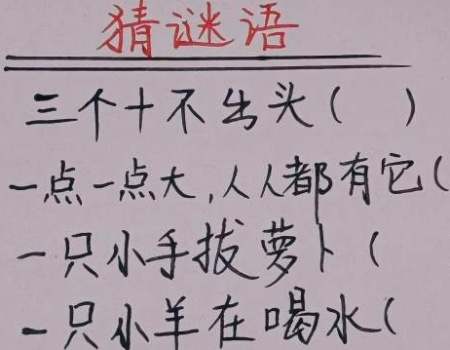 猜谜语
三个十不出头( )
一点一点大,人人都有它(
一只小手拔萝卜(
一只小羊在喝水(